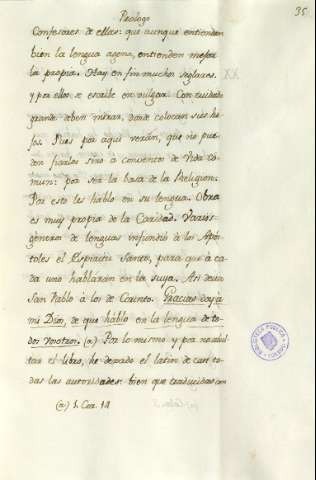 Prólogo
35
Confesores de ellas: que aunque entienden
bien la lengua agena, entienden mejor
la propia. Hay en fin muchos seglares,
y por ellos se escribe en vulgar. Con cuidado
grande deben mirar, donde colocan sus hi-
jos. Pues por aqui verán, que no pue-
den fiarlos sino à conventos de Vida co-
mun: por ser la basa de la Religion.
Por esto les hablo en su lengua. Obra
es muy propia de la Caridad. Varios
géneros de lenguas infundió à los Após-
toles el Espiritu Santo, para que à ca-
da uno hablaran en la suya. Asi decia
San Pablo à los de Corinto. Gracias doy à
mi Dios, de que hablo en la lengua de to-
dos vosotros. (a) Por lo mismo y por no abul-
tar el libro, he dexado el latin de casi to-
das las autoridades: bien que traducidas con
(a) 1. Cor. 14
BIBLIOTECA PUBLICA
TOLEDO